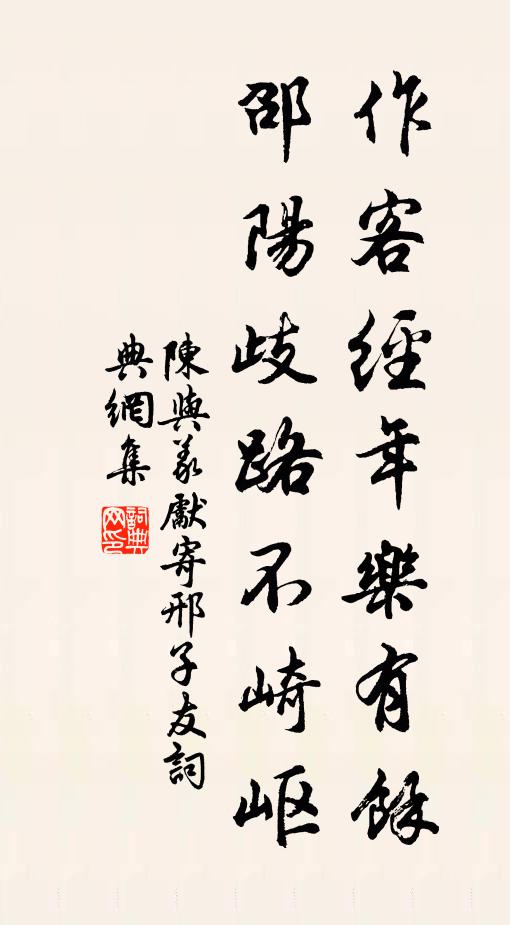 作客經年樂有餘
邵陽歧路不崎岖
陳與義獻寄邢子友詞
典網集
詞典网印